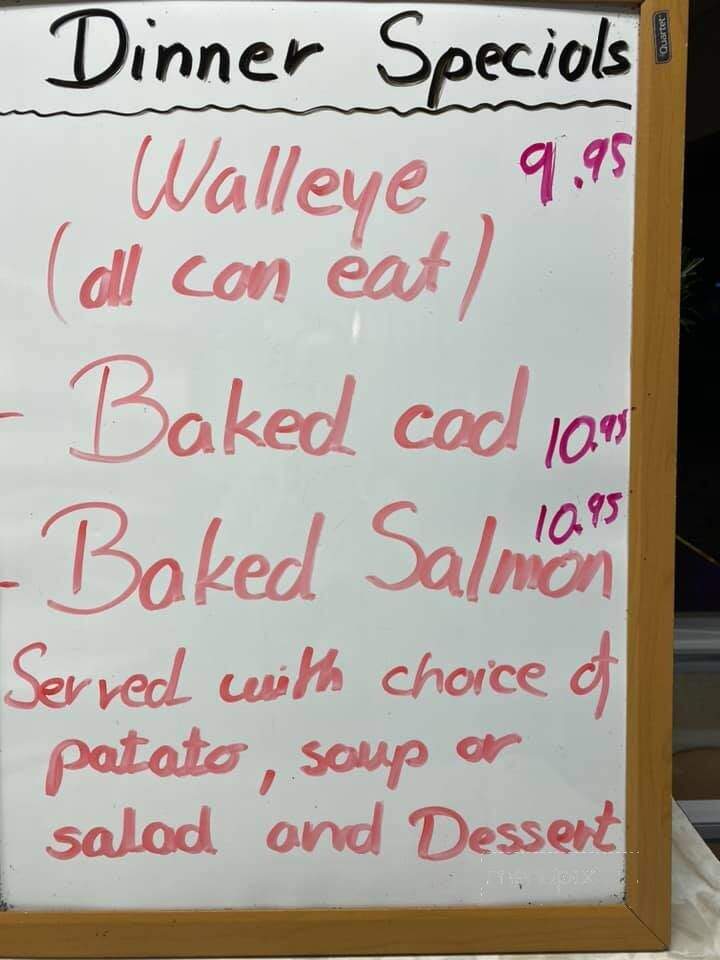 Dinner Specials
Quartet
Walleye 9.95
(all can eat)
- Baked cod 10.95
- Baked Salmon 10.95
Served with choice of
patato, soup or
salad and Dessert
menupix